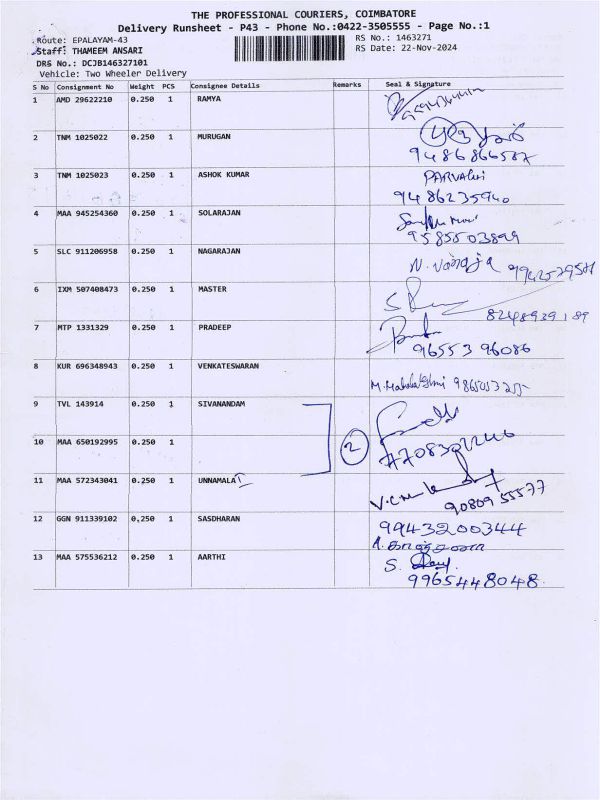 THE PROFESSIONAL COURIERS, COIMBATORE
Delivery Runsheet - P43 - Phone No.:0422-3505555 - Page No.:1
Route: EPALAYAM-43 RS No.: 1463271
Staff: THAMEEM ANSARI RS Date: 22-Nov-2024
DRS No.: DCJB146327101
Vehicle: Two Wheeler Delivery
S No Consignment No Weight PCS Consignee Details Remarks Seal & Signature
1 AMD 29622210 0.250 1 RAMYA
2 TNM 1025022 0.250 1 MURUGAN
9486866587
3 TNM 1025023 0.250 1 ASHOK KUMAR PARVAthi
9486235940
4 MAA 945254360 0.250 1 SOLARAJAN
9585503899
5 SLC 911206958 0.250 1 NAGARAJAN
6 IXM 507408473 0.250 1 MASTER
8248939189
7 MTP 1331329 0.250 1 PRADEEP
96553 96086
8 KUR 696348943 0.250 1 VENKATESWARAN
9 TVL 143914 0.250 1 SIVANANDAM
10 MAA 650192995 0.250 1 2
11 MAA 572343041 0.250 1 UNNAMALAI
90809 55577
12 GGN 911339102 0.250 1 SASDHARAN 9943200344
13 MAA 575536212 0.250 1 AARTHI S.
9965448048